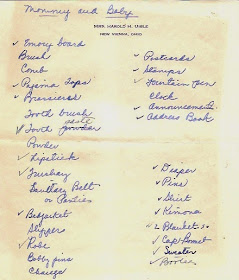 Mommy and Baby
MRS. HAROLD H. UIBLE
NEW VIENNA, OHIO
✓ Emory board
Brush
Comb
✓ Pajama Tops
✓ Brassieres
Tooth brush
paste
✓ Tooth powder
Powder
✓ Lipstick
✓ Turshay
Sanitary Belt
or Panties
✓ Bedjacket
Slippers
✓ Robe
Bobby pins
Change
✓ Postcards
✓ Stamps
✓ Fountain Pen
Clock
✓ Announcements
✓ Address Book
✓ Diaper
✓ Pins
✓ Shirt
✓ Kimona
✓ 2 Blankets
✓ Cap Bonnet
✓ Sweater
✓ Booties